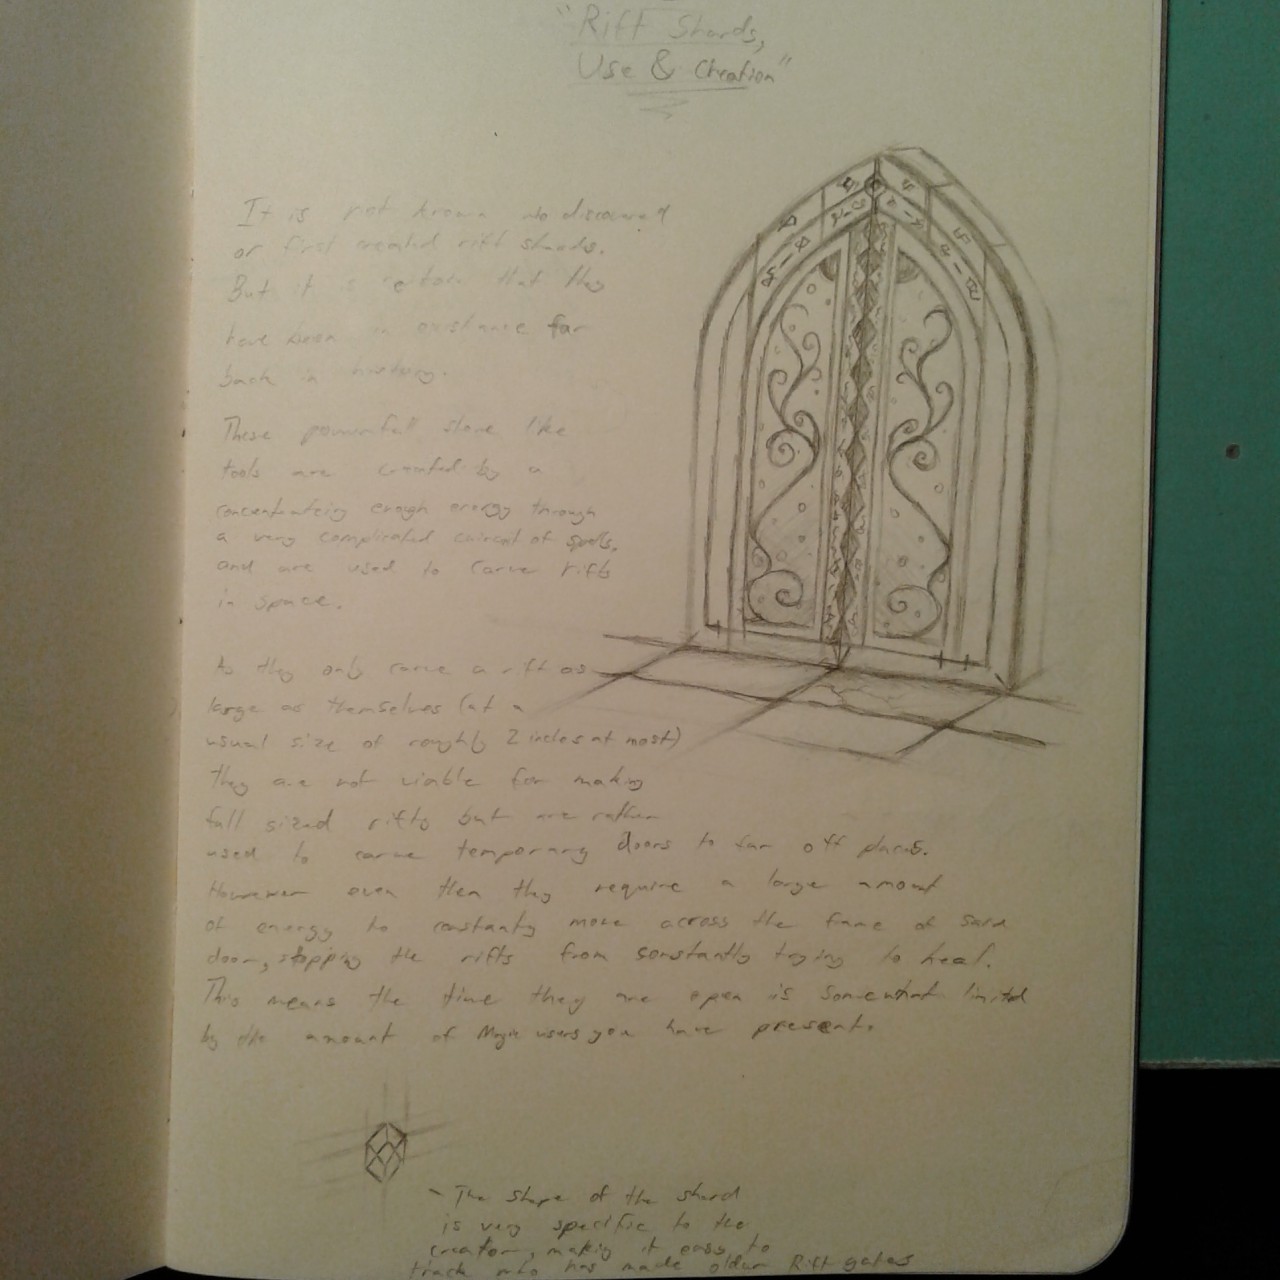 "Rift Shards,
Use & Creation"
It is not known who discovered
or first created rift shards.
But it is certain that they
have been in existance far
back in history.
These powerfull stone like
tools are created by a
concentrateing enough energy through
a very complicated caircut of spells.
and are used to carve rifts
in space.
As they only carve a rift as
large as themselves (at a
usual size of roughly 2 inches at most)
they are not viable for making
full sized rifts but are rather
used to carve temporary doors to far off places.
However even then they require a large amount
of energy to constanty move across the frame of said
door, stopping the rifts from constantly trying to heal.
This means the time they are open is somewhat limited
by the amount of Magic users you have present.
- The shape of the shard
is very specific to the
creator, making it easy to
track who has made older Rift gates